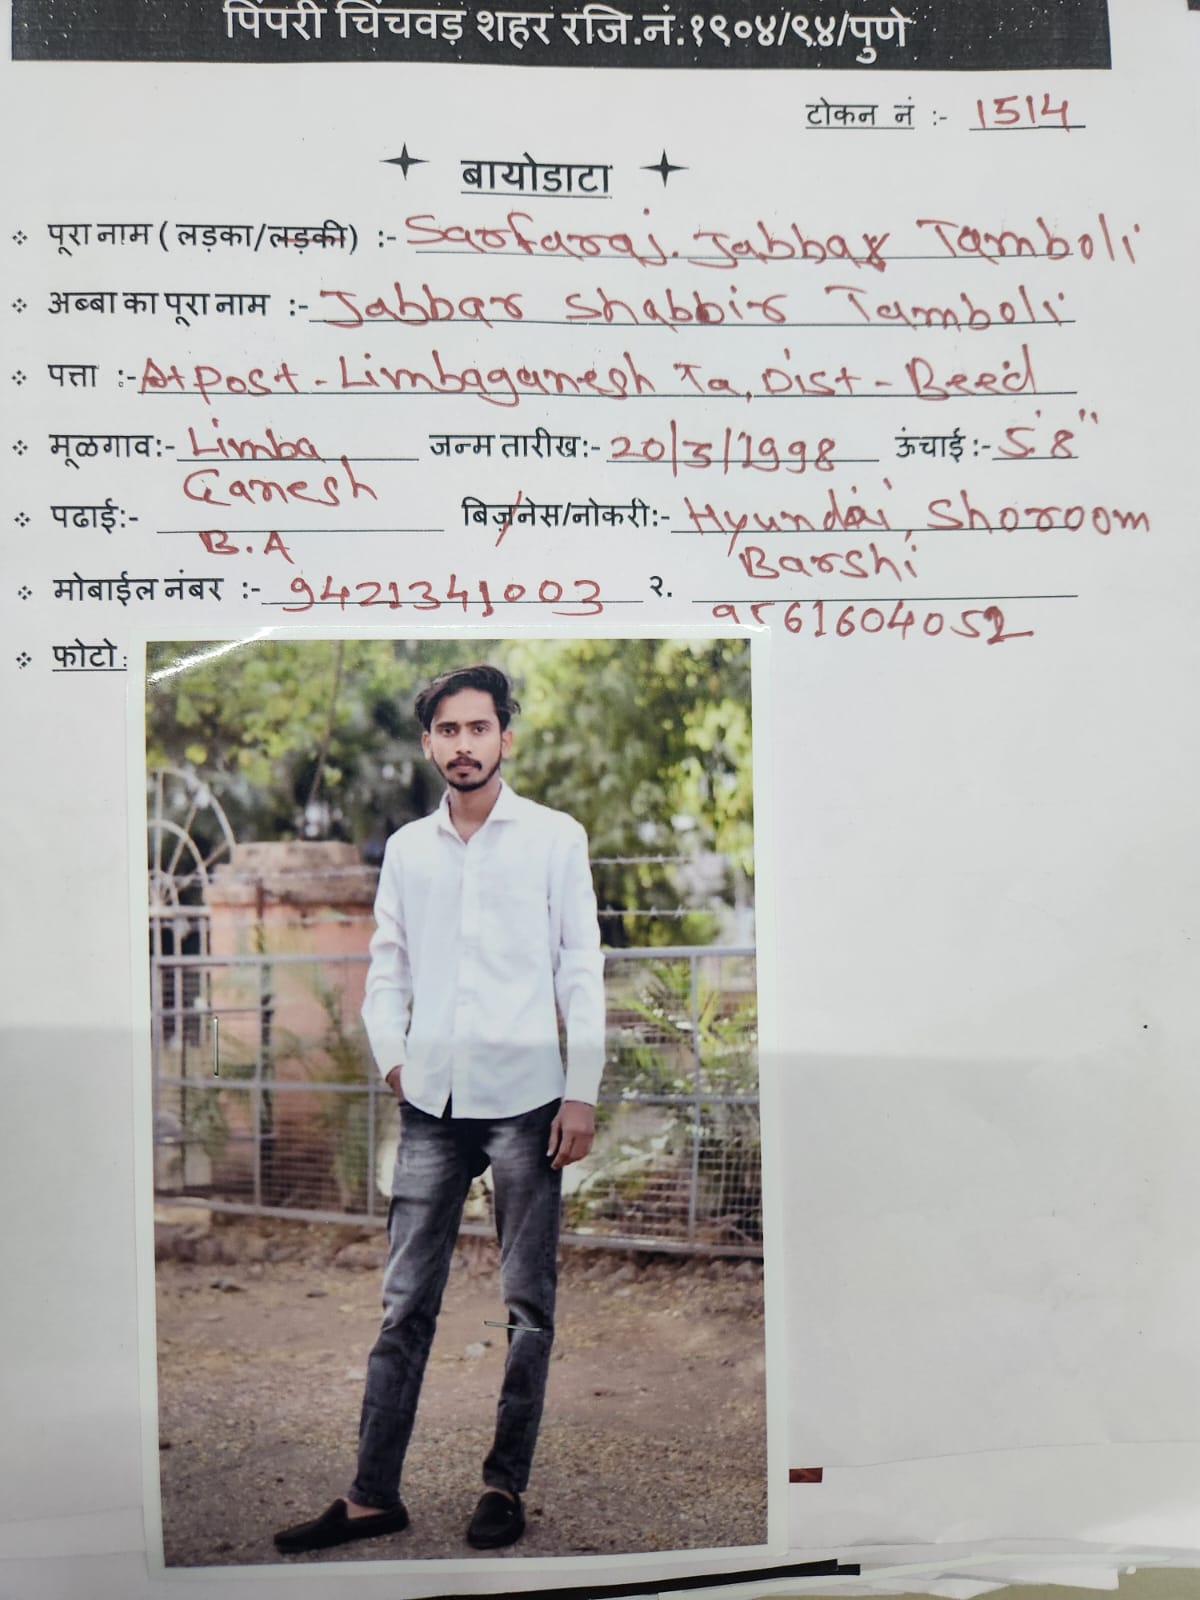 पिंपरी चिंचवड़ शहर रजि.नं.१९०४/९४/पुणे
टोकन नं :- 1514
बायोडाटा
पूरा नाम ( लड़का/लड़की) :- Sarfaraj. Jabbar Tamboli
अब्बा का पूरा नाम :- Jabbar Shabbir Tamboli
पत्ता :- At post - Limbaganesh Ta, Dist - Beed
मूळगाव:- Limba Ganesh जन्म तारीख:- 20/3/1998 ऊंचाई :- 5'8"
पढाई:- B.A बिज़नेस/नोकरी:- Hyundai, Shoroom Barshi
मोबाईल नंबर :- 9421341003 २. 9561604052
फोटो :